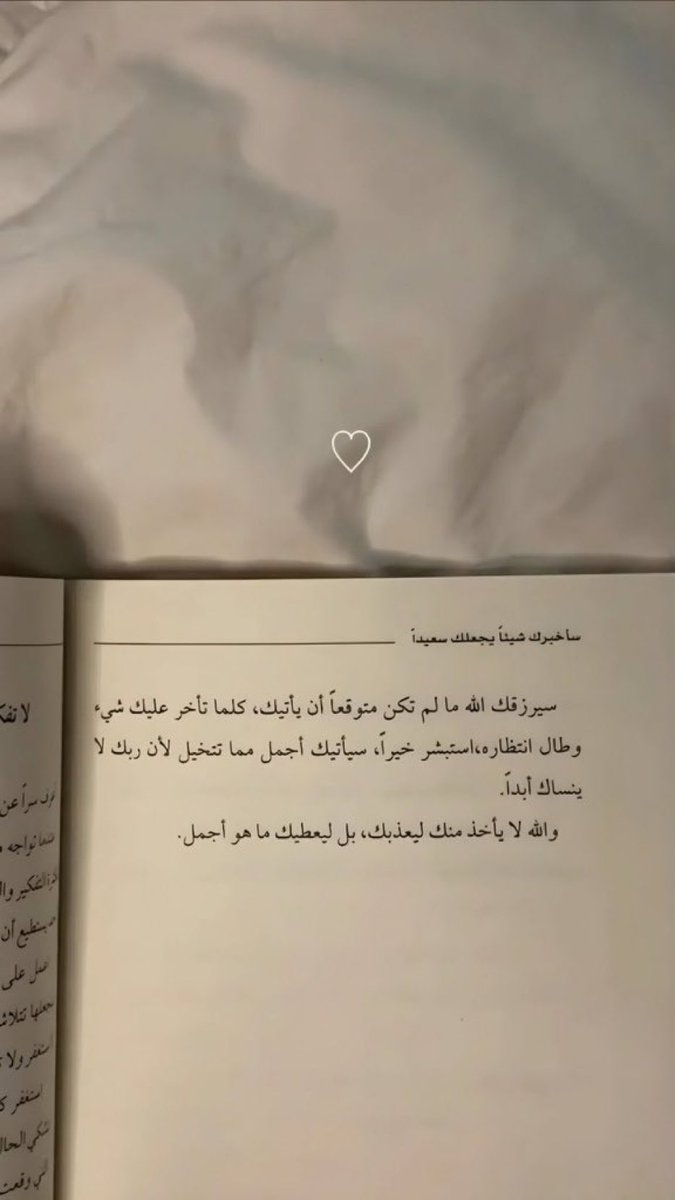 سأخبرك شيئاً يجعلك سعيداً
سيرزقك الله ما لم تكن متوقعاً أن يأتيك، كلما تأخر عليك شيء
وطال انتظاره،استبشر خيراً، سيأتيك أجمل مما تتخيل لأن ربك لا
ينساك أبداً.
والله لا يأخذ منك ليعذبك، بل ليعطيك ما هو أجمل.
سراً عن
تواجه
التفكير
يستطيع أن
على
استغفر ولا
استغفر